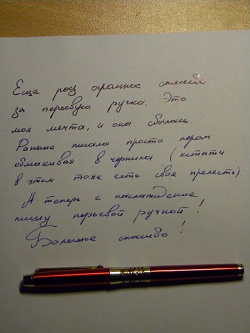 Еще раз огромное спасибо
за перьевую ручку. Это
моя мечта, и она сбылась
Раньше писала просто пером
обмакивая в чернила (кстати
в этом тоже есть своя прелесть).
А теперь с наслаждением
пишу перьевой ручкой!
Большое спасибо!